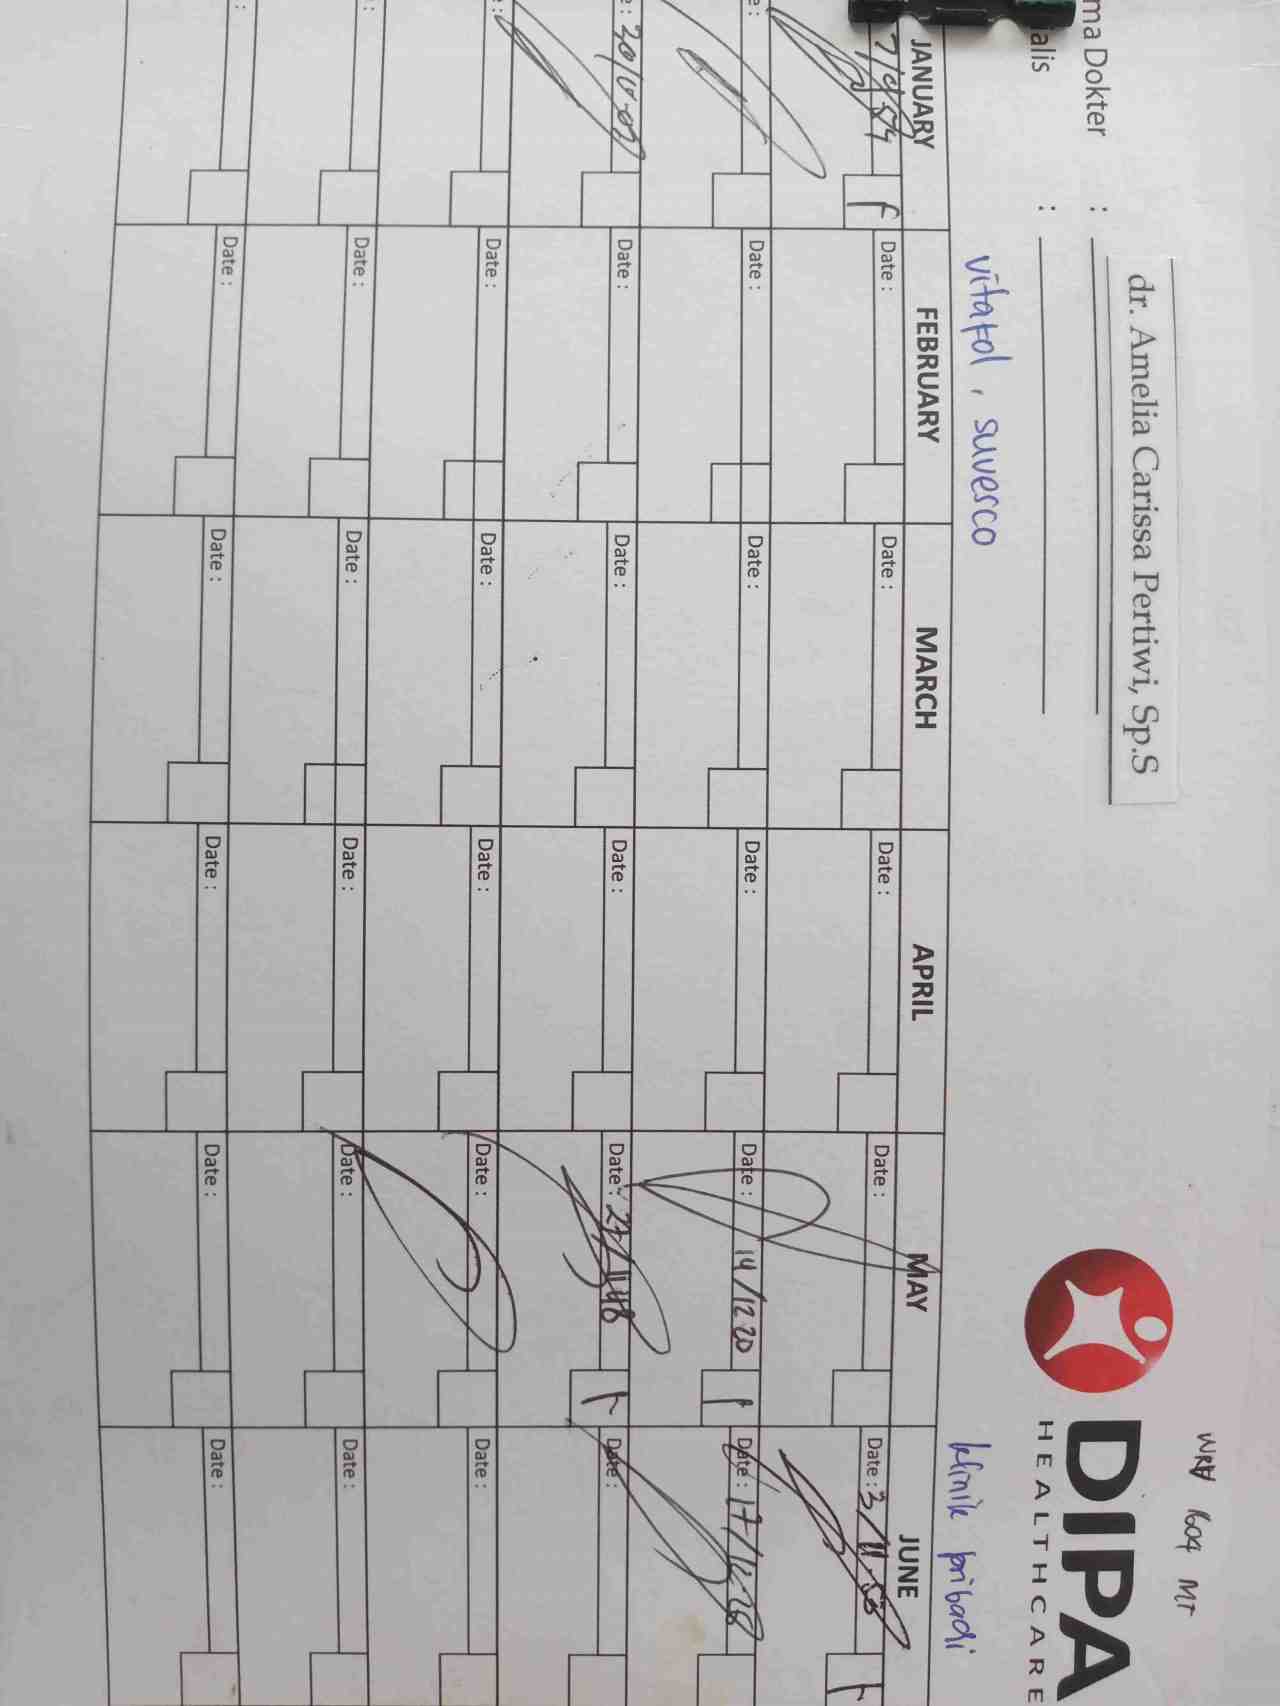 WRA 1604 MT
DIPA
HEALTHCARE
ma Dokter : dr. Amelia Carissa Pertiwi, Sp.S
alis :
vitafol, suvesco
klinik pribadi
JANUARY FEBRUARY MARCH APRIL MAY JUNE
Date : Date : Date : Date : Date : 3/11.58
Date : Date : Date : Date : 14/12 20 Date :
Date : Date : Date : Date : Date :
Date : Date : Date : Date : Date :
Date : Date : Date : Date : Date :
Date : Date : Date : Date : Date :